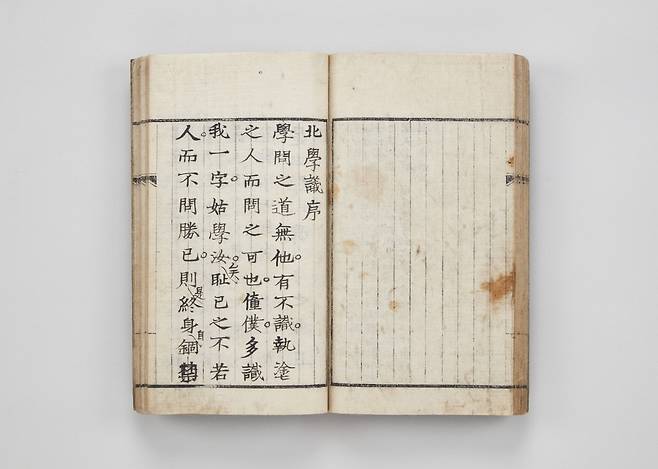 北學議序
學問之道無他。有不識。執塗
之人而問之可也。僮僕。多識
我一字姑學汝。恥已之不若
人。而不問勝已。則是終身自錮